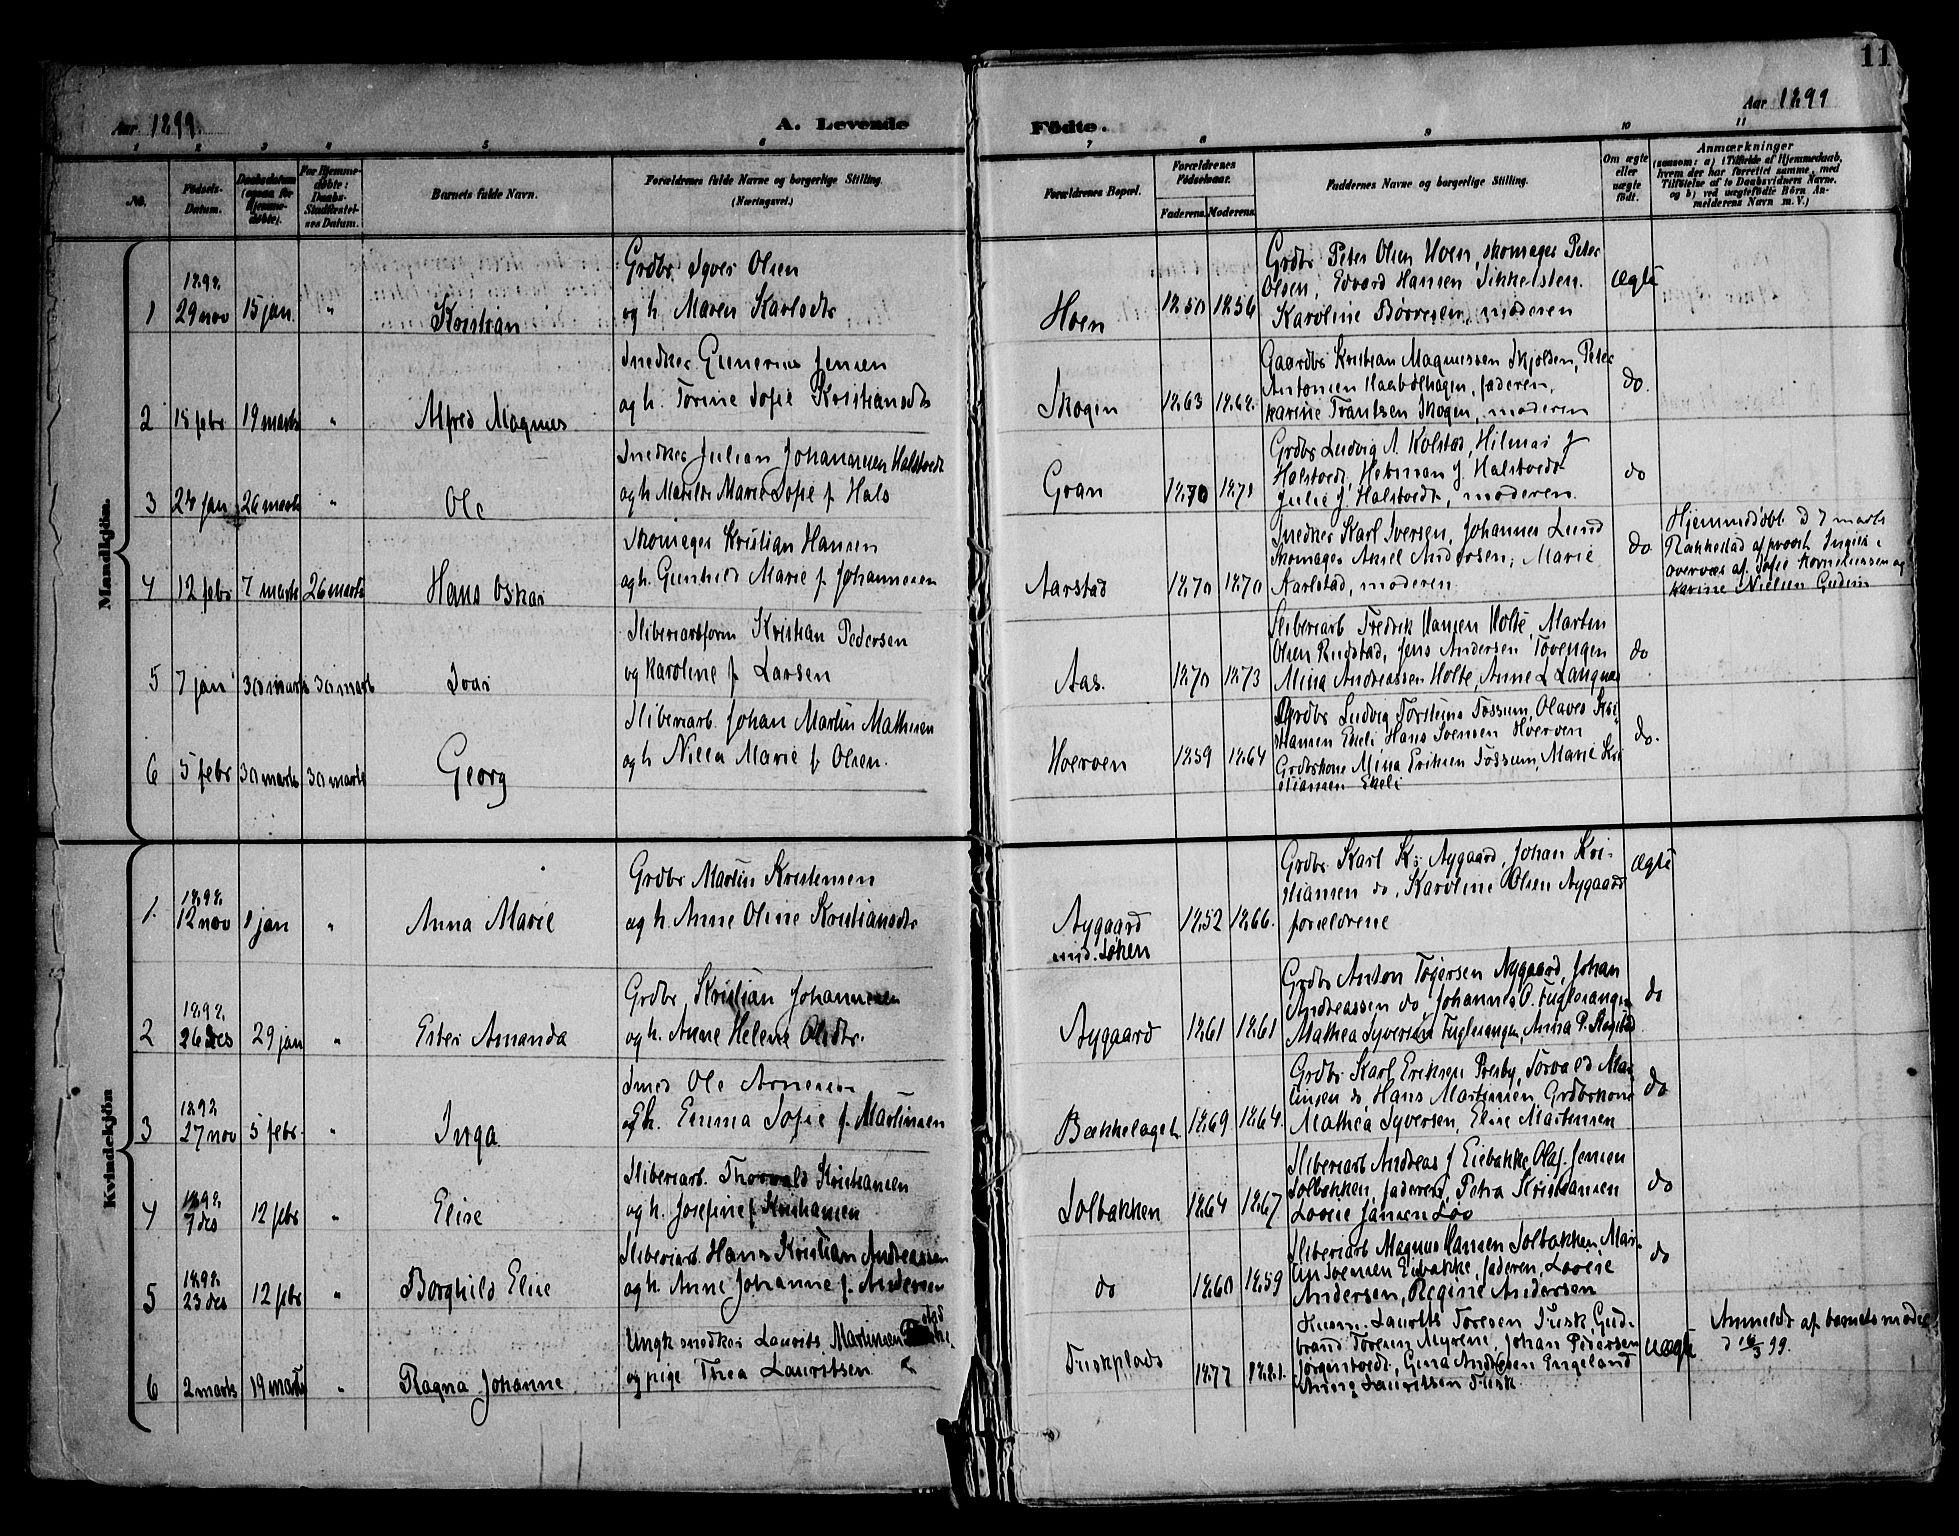 11
Aar 1899.
A. Levende
Födte.
Aar 1899
1 2 3 4 5 6 7 8 9 10 11
No.
Födsels-
Datum.
Daabsdatum
(ogsaa for
Hjemme-
döbte).
For Hjemme-
döbte:
Daabs-
Stadfæstel-
ses Datum.
Barnets fulde Navn.
Forældrenes fulde Navne og borgerlige Stilling.
(Næringsvei.)
Forældrenes Bopæl.
Forældrenes
Födselsaar.
Faderens. Moderens.
Faddernes Navne og borgerlige Stilling.
Om ægte
eller
uægte
födt.
Anmærkninger
(saasom: a) i Tilfælde af Hjemmedaab,
hvem der har forrettet samme, med
Tilföielse af to Daabsvidners Navne,
og b) ved uægtefödte Börn An-
melderens Navn m. V.)
Mandkjön.
1 1898. 29 nov 15 jan. " Kristian
Grdbr Syver Olsen
og h. Maren Karlsdtr
Hoen 1850 1856
Grdbr Peter Olsen Hoen, skomager Peter
Olsen, Edvard Hansen
Karoline Börresen, moderen
ægte
2 15 febr 19 marts " Alfred Magnus
Snedker Gunerius Jensen
og h. Torine Sofie Kristiansdtr
Skogen 1863 1868.
Gaardbr Kristian Magnussen Skjolden, Peter
Antonsen Haabolhagen, faderen,
Karine Frantsen Skogen, moderen
do.
3 24 jan 26 marts " Ole
Snedker Julian Johannesen Halstvedt
og h. Matilde Marie Sofie f. Hals
Gran 1870 1871
Grdbr Ludvig A. Kolstad, Hilmar J
Halstvedt, Herman J. Halstvedt
Julie J. Halstvedt, moderen.
do
4 12 febr 7 marts 26 marts Hans Oskar
Skomager Kristian Hansen
og h. Gunhild Marie f. Johannesen
Aarstad 1870 1870
Snedker Karl Iversen, Johannes Lund
Skomager Anders Andersen, Marie
Karlstad, moderen
do.
Hjemmedöbt d 7 marts
Rakkestad af provst
overvær af Sofie Korneliussen og
Karine Nielsen Gudim
5 7 jan 30 marts 30 marts Ivar
Sliberiarbform Kristian Pedersen
og Karoline f. Larsen
Aas. 1870 1873
Sliberiarb Fredrik Hansen Holte, Martin
Olsen Rudstad, Jens Andersen Tovengen
Mina Andreassen Holte, Anne L Langnæs
do
6 5 febr 30 marts 30 marts Georg
Sliberiarb. Johan Martin Mathisen
og h. Nilla Marie f. Olsen.
Hverven 1859 1864
Grdbr Ludvig Torsteins Fossum, Olaves Kri-
stiansen Ekeli, Hans Svensen Hverven
Grdbrkone Mina Eriksen Fossum, Marie Kri
stiansen Ekeli
do.
Kvindekjön
1. 1898. 12 nov 1 jan " Anna Marie
Grdbr Martin Kristensen
og h. Anne Oline Kristiansdtr
Nygaard
und. Löken
1852 1866.
Grdbr Karl Kr. Nygaard, Johan Kri-
stiansen do, Karoline Olsen Nygaard
forældrene
ægte
2 1898. 26 des 29 jan " Ester Amanda
Grdbr, Kristian Johannesen
og h. Anne Helene Olsdtr.
Nygaard 1861 1861
Grdbr Anton Torgersen Nygaard, Johan
Andreassen do, Johannes O. Fuglerangen
Mathea Syversen Fuglerangen, Anna P.
do
3 1898 27 nov 5 febr. " Inga
Smed Ole Arnesen
og h. Emma Sofie f. Martinsen
Bækkelaget 1869 1864.
Grdbr Karl Eriksen Presby, Torvald Mar
tinsen do, Hans Martinsen Grdbrkone
Mathea Syversen, Elise Martinsen
do
4 1898. 7 des 12 febr " Elise
Sliberiarb. Thorvald Kristiansen
og h. Josefine f. Kristiansen
Solbakken 1864 1867
Sliberiarb Andreas J Eiebakke, Olaf Jensen
Solbakken, faderen, Petra Kristiansen
Lovise Jansen Löv
do
5 1898. 23 des 12 febr " Borghild Elise
Sliberiarb. Hans Kristian Andreassen
og h. Anne Johanne f. Andersen
do 1860 1859
Sliberiarb Magnus Hansen Solbakken, Mar.
tin Svensen Eiebakke, faderen, Lovise
Andersen, Regine Andersen
do
6 2 marts 19 marts " Ragna Johanne
Ungk snedker Laurits Martinsen
og pige Thea Lauritsen
Tuskplads 1877 1881.
Husm. Laurits Toresen Tusk, Gud-
brand Toresen Myrene, Johan Pedersen
Jörgentvedt, Gina Andresen Engeland
Lauritsen Tusk
uægte
Anmeldt af barnets moder
d 16/3 99.